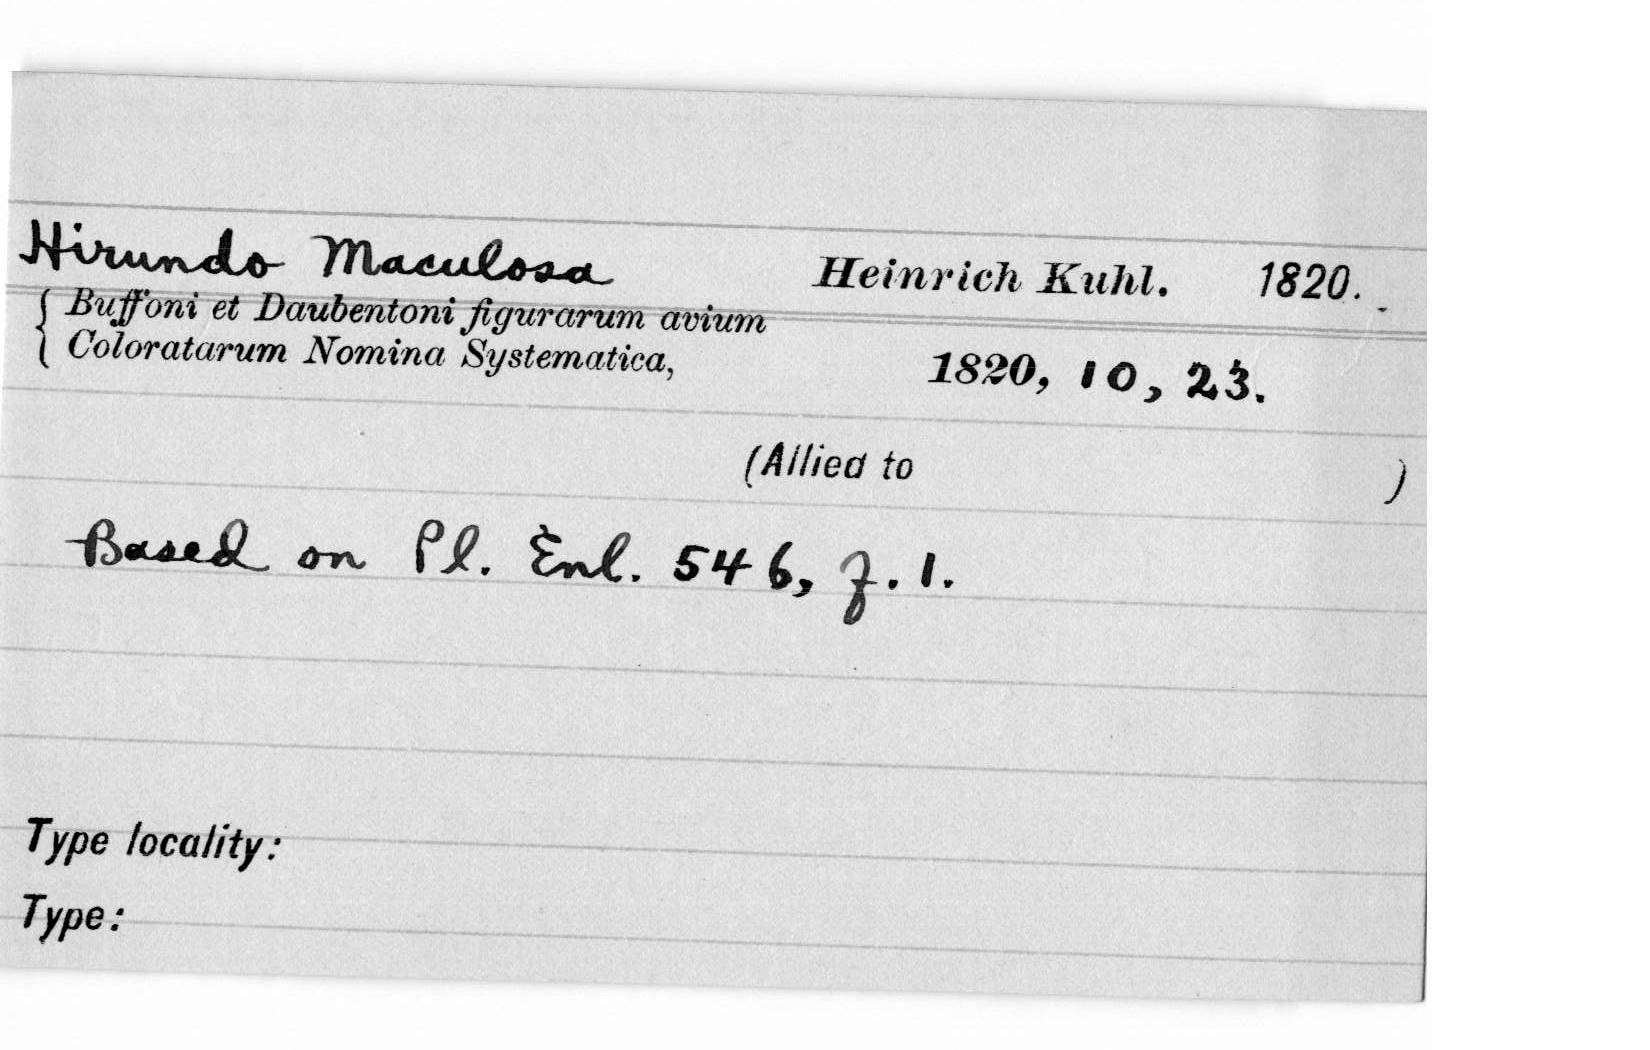 Hirundo Maculosa Heinrich Kuhl. 1820.
Buffoni et Daubentoni figurarum avium
Coloratarum Nomina Systematica, 1820, 10, 23.
(Allied to )
Based on Pl. Enl. 546, f. 1.
Type locality:
Type: